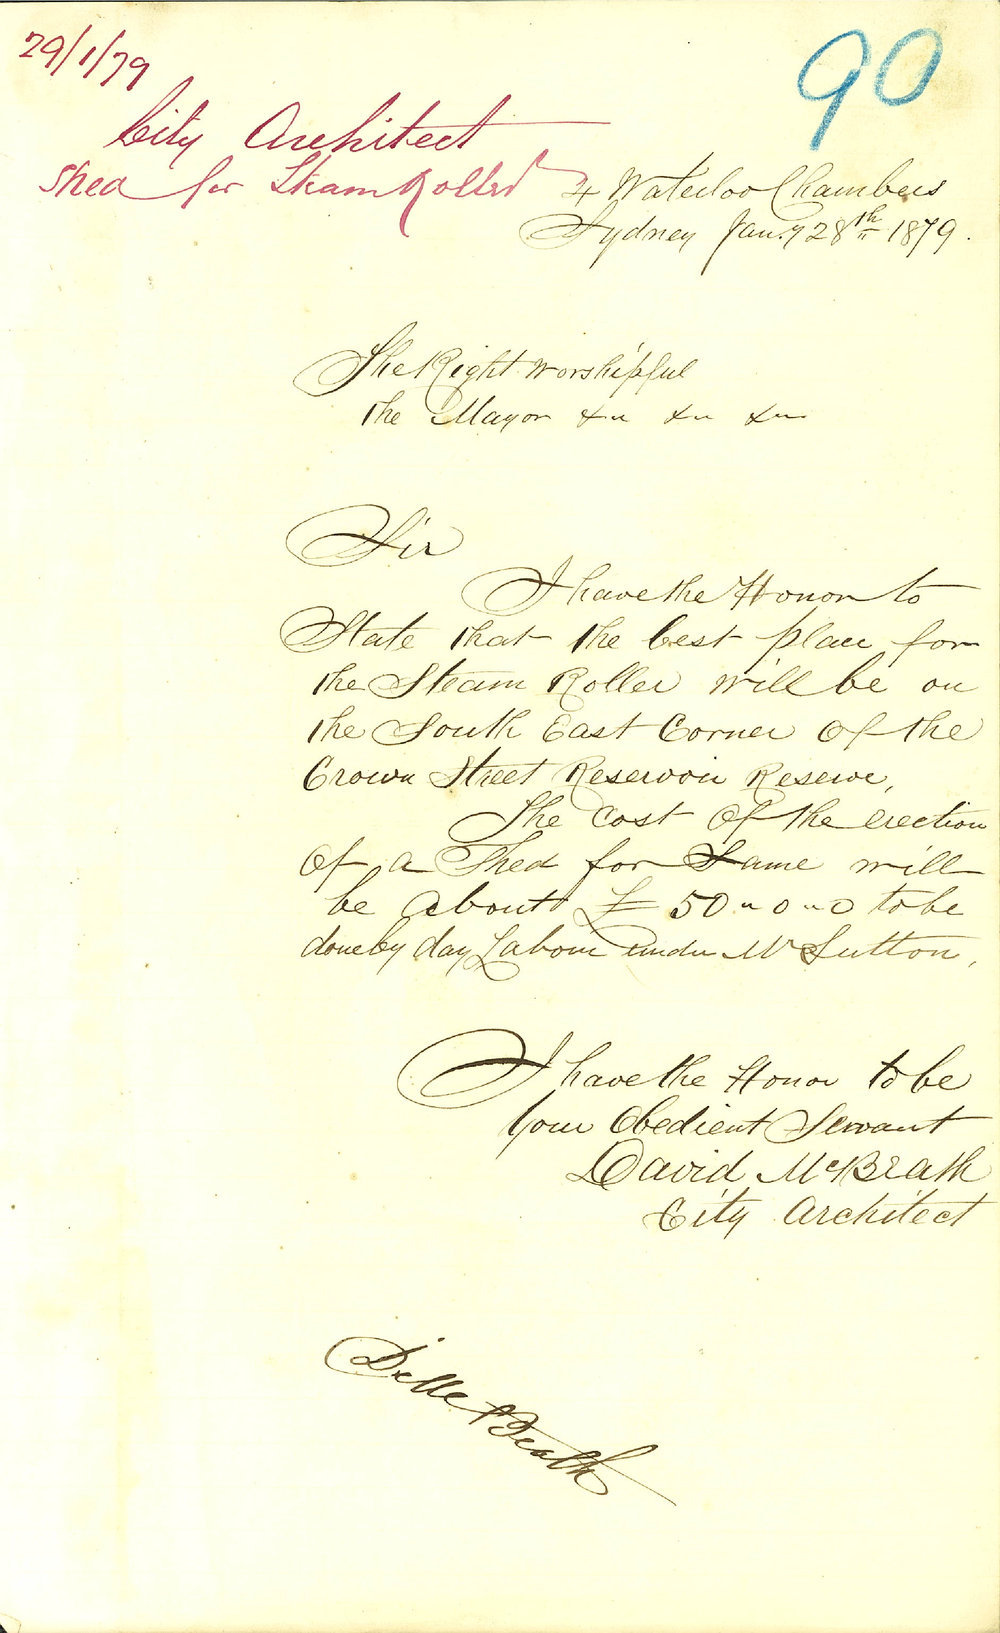 29/1/79
90
City Architect
Shed for Steam Roller
4 Waterloo Chambers
Sydney Jany 28th 1879.
The Right Worshipful
the Mayor &c &c &c
Sir
I have the Honor to
State that the best place for
the Steam Roller will be on
the South East Corner of the
Crown Street Reservoir Reserve,
The cost of the erection
of a Shed for Same will
be about £50"0"0 to be
done by day Labour under Mr Sutton,
I have the Honor to be
Your Obedient Servant
David McBeath
City Architect